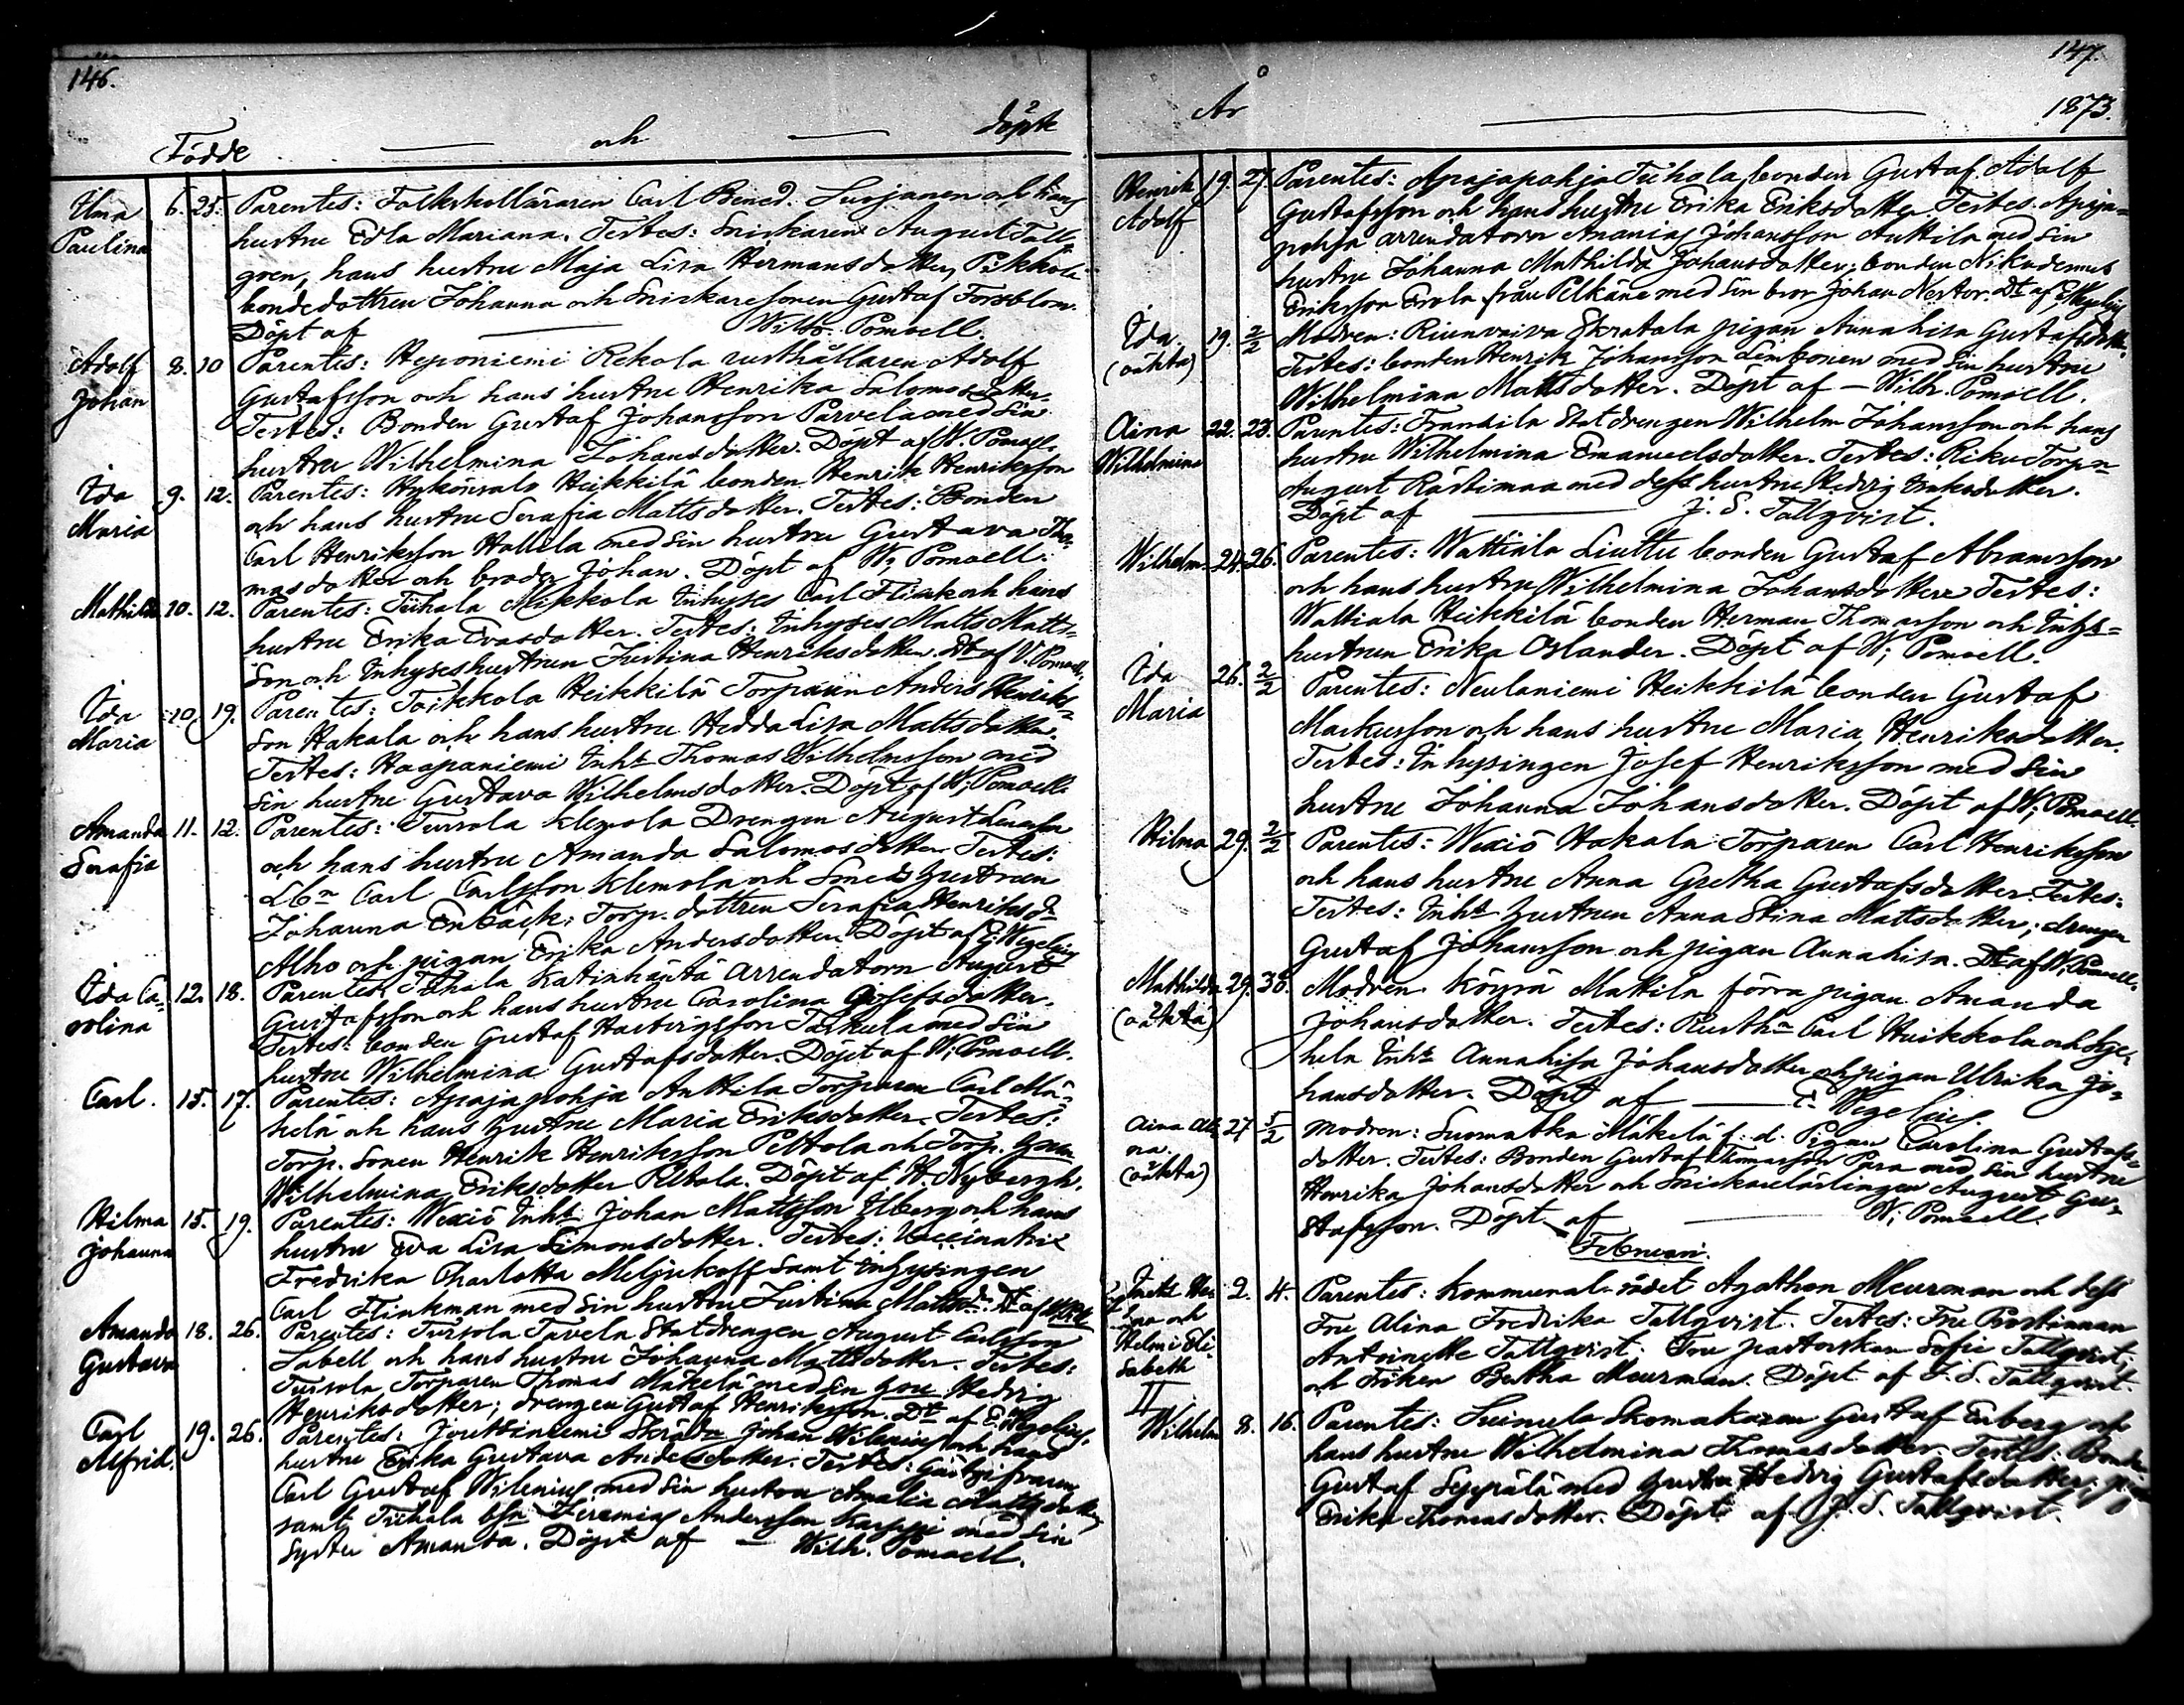 146.
Födde — och — döpte
Ilma 6. 25. Parentes: Folkskolläraren Carl Bened. Suojanen och hans
Paulina hustru Edla Mariana. Testes: Snickaren August Tall-
gren, hans hustru Maja Lisa Hermansdotter, Pikkola
bondedottren Johanna och Snickaresonen Gustaf Forsblom.
Döpt af — Wilh. Pomoell.
Adolf 8. 10 Parentes: Heponiemi Rekola rusthållaren Adolf
Johan Gustafsson och hans hustru Henrika Salomosdotter.
Testes: Bonden Gustaf Johansson Parvela med sin
hustru Wilhelmina Johansdotter. Döpt af W. Pomoell.
Ida 9. 12. Parentes: Heikkilä bonden Henrik Henriksson
Maria och hans hustru Serafia Mattsdotter. Testes: Bonden
Carl Henriksson Hallila med sin hustru Gustava Tho-
masdotter och broder Johan. Döpt af W. Pomoell.
Mathilda 10. 12. Parentes: Tiihala Mikkola Inhyses Carl Flink och hans
hustru Erika Evasdotter. Testes: Inhyses Matts Matts-
son och Inhyseshustrun Justina Henriksdotter. Dt af W. Pomoell.
Ida 10. 19. Parentes: Toikkola Heikkilä Torparen Anders Henriks-
Maria son Hakala och hans hustru Hedda Lisa Mattsdotter.
Testes: Haapaniemi Inh: Thomas Wilhelmsson med
sin hustru Gustava Wilhelmsdotter. Döpt af W. Pomoell.
Amanda 11. 12. Parentes: Tursola Klemola Drengen August
Serafia och hans hustru Amanda Salomosdotter. Testes:
Carl Carlsson Klemola och Smeds hustrun
Johanna Enbäck; Torp. dottren Serafia Henriksdr
Alho och pigan Erika Andersdotter. Döpt af E. Wegelius
Ida Ca- 12. 18. Parentes: Tiihala Katinhäntä arrendatorn August
rolina Gustafsson och hans hustru Carolina Josefsdotter.
Testes: bonden Gustaf med sin
hustru Wilhelmina Gustafsdotter. Döpt af W. Pomoell.
Carl. 15. 17. Parentes: Apajapohja Anttila Torparen Carl Mä-
kelä och hans hustru Maria Eriksdotter. Testes:
Torp. sonen Henrik Henriksson Peltola och Torp.
Wilhelmina Eriksdotter Peltola. Döpt af H. Nybergh.
Hilma 15. 19. Parentes: Wexiö Inh: Johan Mattsson Ylberg och hans
Johanna hustru Eva Lisa Simonsdotter. Testes: Vaccinatrix
Fredrika Charlotta Meljukoff samt Inhysingen
Carl Flinkman med sin hustru Justina Mattsdr. Dt af
Amanda 18. 26. Parentes: Tursola Tavela Statdrengen August Carlsson
Gustava Sabell och hans hustru Johanna Mattsdotter. Testes:
Tursola Torparen Thomas Mäkelä med sin Hedvig
Henriksdotter; drengen Gustaf Henriksson. Dt af E. Wegelius.
Carl 19. 26. Parentes: Jouttiniemi Johan Wilenius och hans
Alfrid. hustru Erika Gustava Andersdotter. Testes: Gästgifvaren
Carl Gustaf Wilenius med sin hustru Amalia Mattsdotter
samt Tiihala Jeremias Andersson Karppi med sin
Syster Amanda. Döpt af — Wilh. Pomoell.
147.
År — 1873.
Henrik 19. 27 Parentes: Apajapohja Tiihala bonden Gustaf Adolf
Adolf Gustafsson och hans hustru Erika Eriksdotter. Testes: Apaja-
pohja arrendatorn Ananias Johansson Anttila med sin
hustru Johanna Mathilda Johansdotter; bonden Nikodemus
Eriksson Erola från Pelkäne med sin bror Johan Nestor. Dt af E. Wegelius
Ida 19. 2/2 Modren: Riunvaiva Skratala pigan Annalisa Gustafsdotter.
(oäkta) Testes: bonden Henrik Johansson Limkonen med sin hustru
Wilhelmina Mattsdotter. Döpt af — Wilh. Pomoell.
Aina 22. 23. Parentes: Frankila Statdrengen Wilhelm Johansson och hans
Wilhelmina hustru Wilhelmina Emanuelsdotter. Testes: Riku Torpn
August Rästimaa med dess hustru Hedvig Eriksdotter.
Döpt af — J. S. Tallqvist.
Wilhelm 24. 26. Parentes: Wattiala Liuttu bonden Gustaf Abramsson
och hans hustru Wilhelmina Johansdotter. Testes:
Wattiala Heikkilä bonden Herman Thomasson och Inhys-
hustrun Erika Oslander. Döpt af W. Pomoell.
Ida 26. 2/2 Parentes: Neulaniemi Heikkilä bonden Gustaf
Maria Markusson och hans hustru Maria Henriksdotter.
Testes: Inhysingen Josef Henriksson med sin
hustru Johanna Johansdotter. Döpt af W. Pomoell.
Hilma 29. 2/2 Parentes: Wexiö Hakala Torparen Carl Henriksson
och hans hustru Anna Gretha Gustafsdotter. Testes:
Testes: Inh: hustrun Anna Stina Mattsdotter; drengen
Gustaf Johansson och pigan Annalisa. Dt af W. Pomoell.
Mathilda 29. 30. Modren Köyrä Mattila förra pigan Amanda
(oäkta) Johansdotter. Testes: Rusthn Carl Heikkola och
Inh: Annalisa Johansdotter och pigan Ulrika Jo-
hansdotter. Döpt af — E. Wegelius.
Aina Ali- 27 5/2 Modren: Suomatka Mäkelä f. d. Pigan Carolina Gustafs-
na. dotter. Testes: Bonden Gustaf Thomasson Para med sin hustru
(oäkta) Henrika Johansdotter och Snickarelärlingen August Gu-
stafsson. Döpt af — W. Pomoell.
Februari.
2. 4. Parentes: Kommunalrådet Agathon Meurman och dess
och Fru Alina Fredrika Tallqvist. Testes: Fru Prostinnan
Helmi Eli- Antoinette Tallqvist. Fru pastorskan Sofie Tallqvist;
sabeth och Fröken Bertha Meurman. Döpt af J. S. Tallqvist.
II
Wilhelm 8. 16. Parentes: Suinula Skomakaren Gustaf Enberg och
hans hustru Wilhelmina Thomasdotter. Testes:
Gustaf Seppälä med hustru Hedvig Gustafsdotter;
Erika Thomasdotter. Döpt af J. S. Tallqvist.